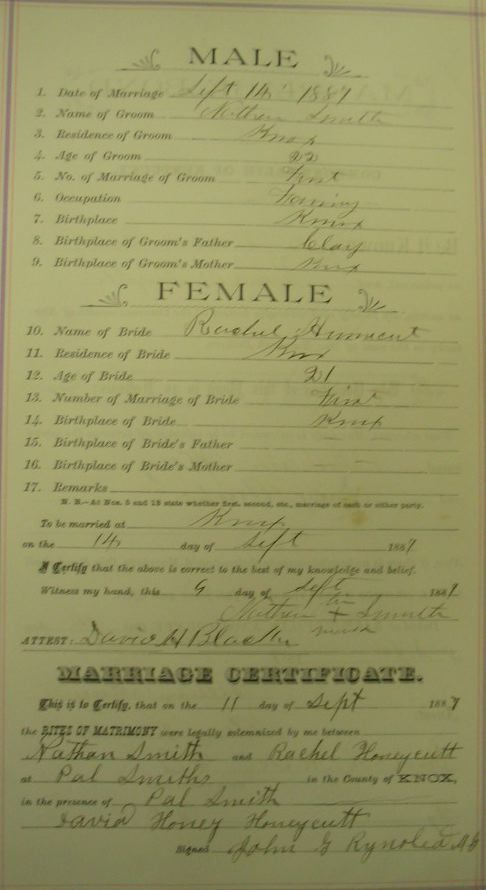 MALE
1. Date of Marriage Sept 14 1887
2. Name of Groom Nathan Smith
3. Residence of Groom Knox
4. Age of Groom 22
5. No. of Marriage of Groom First
6. Occupation Farming
7. Birthplace Knox
8. Birthplace of Groom's Father Clay
9. Birthplace of Groom's Mother Knox
FEMALE
10. Name of Bride Rachel
11. Residence of Bride Knx
12. Age of Bride 21
13. Number of Marriage of Bride First
14. Birthplace of Bride Knox
15. Birthplace of Bride's Father
16. Birthplace of Bride's Mother
17. Remarks
N. B.—At Nos. 5 and 13 state whether first, second, etc., marriage of each or other party.
To be married at Knox
on the 14 day of Sept 1887
I Certify that the above is correct to the best of my knowledge and belief.
Witness my hand, this 9 day of Sept 1887
Nathan + Smith
mark
ATTEST: David H
MARRIAGE CERTIFICATE.
This is to Certify, that on the 11 day of Sept 1887
the RITES OF MATRIMONY were legally solemnized by me between
Nathan Smith and Rachel Honeycutt
at Pal Smiths in the County of KNOX,
in the presence of Pal Smith
David Honey Honeycutt
Signed John G